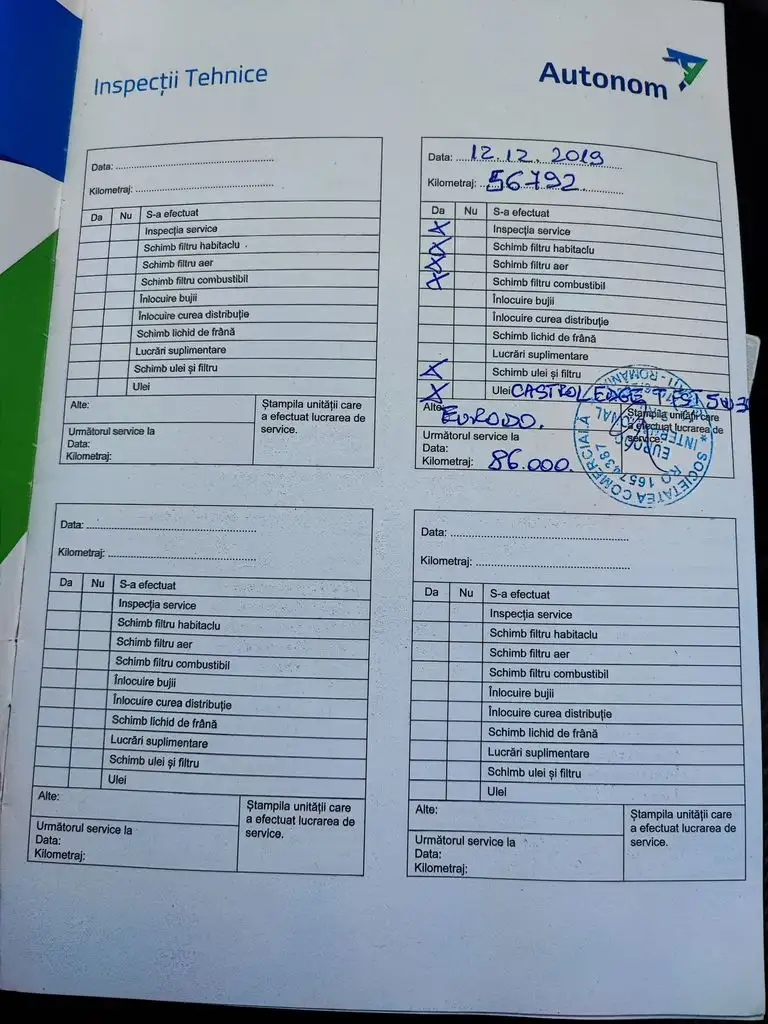 Inspecții Tehnice
Autonom
Data:
Kilometraj:
Da Nu S-a efectuat
Inspecția service
Schimb filtru habitaclu
Schimb filtru aer
Schimb filtru combustibil
Înlocuire bujii
Înlocuire curea distribuție
Schimb lichid de frână
Lucrări suplimentare
Schimb ulei și filtru
Ulei
Alte:
Ștampila unității care
a efectuat lucrarea de
service.
Următorul service la
Data:
Kilometraj:
Data: 12.12.2019
Kilometraj: 56792
Da Nu S-a efectuat
X Inspecția service
X Schimb filtru habitaclu
X Schimb filtru aer
X Schimb filtru combustibil
Înlocuire bujii
Înlocuire curea distribuție
Schimb lichid de frână
Lucrări suplimentare
X Schimb ulei și filtru
X Ulei CASTROL EDGE 5W30
Alte: EURODO.
Ștampila unității care
a efectuat lucrarea de
service.
Următorul service la
Data:
Kilometraj: 86.000.
SOCIETATEA COMERCIALĂ
RO 16574387
INTERNAȚIONAL
ROMÂNIA
Data:
Kilometraj:
Da Nu S-a efectuat
Inspecția service
Schimb filtru habitaclu
Schimb filtru aer
Schimb filtru combustibil
Înlocuire bujii
Înlocuire curea distribuție
Schimb lichid de frână
Lucrări suplimentare
Schimb ulei și filtru
Ulei
Alte:
Ștampila unității care
a efectuat lucrarea de
service.
Următorul service la
Data:
Kilometraj:
Data:
Kilometraj:
Da Nu S-a efectuat
Inspecția service
Schimb filtru habitaclu
Schimb filtru aer
Schimb filtru combustibil
Înlocuire bujii
Înlocuire curea distribuție
Schimb lichid de frână
Lucrări suplimentare
Schimb ulei și filtru
Ulei
Alte:
Ștampila unității care
a efectuat lucrarea de
service.
Următorul service la
Data:
Kilometraj: